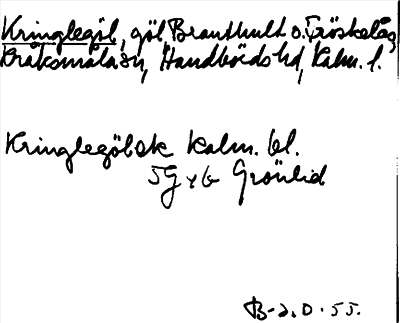 Kringlegöl, göl Branthult o. Fröskelås
Kråksmåla sn, Handbörds hd, Kalm. l.
Kringlegöl ek Kalm. bl.
5G y b Grönlid
B-2.D.55.